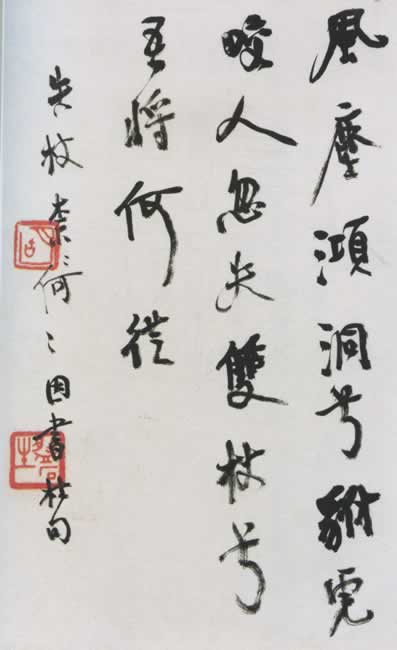 風塵澒洞兮豺虎
咬人忽失雙杖兮
吾將何從
失杖奈=何=因書杜句